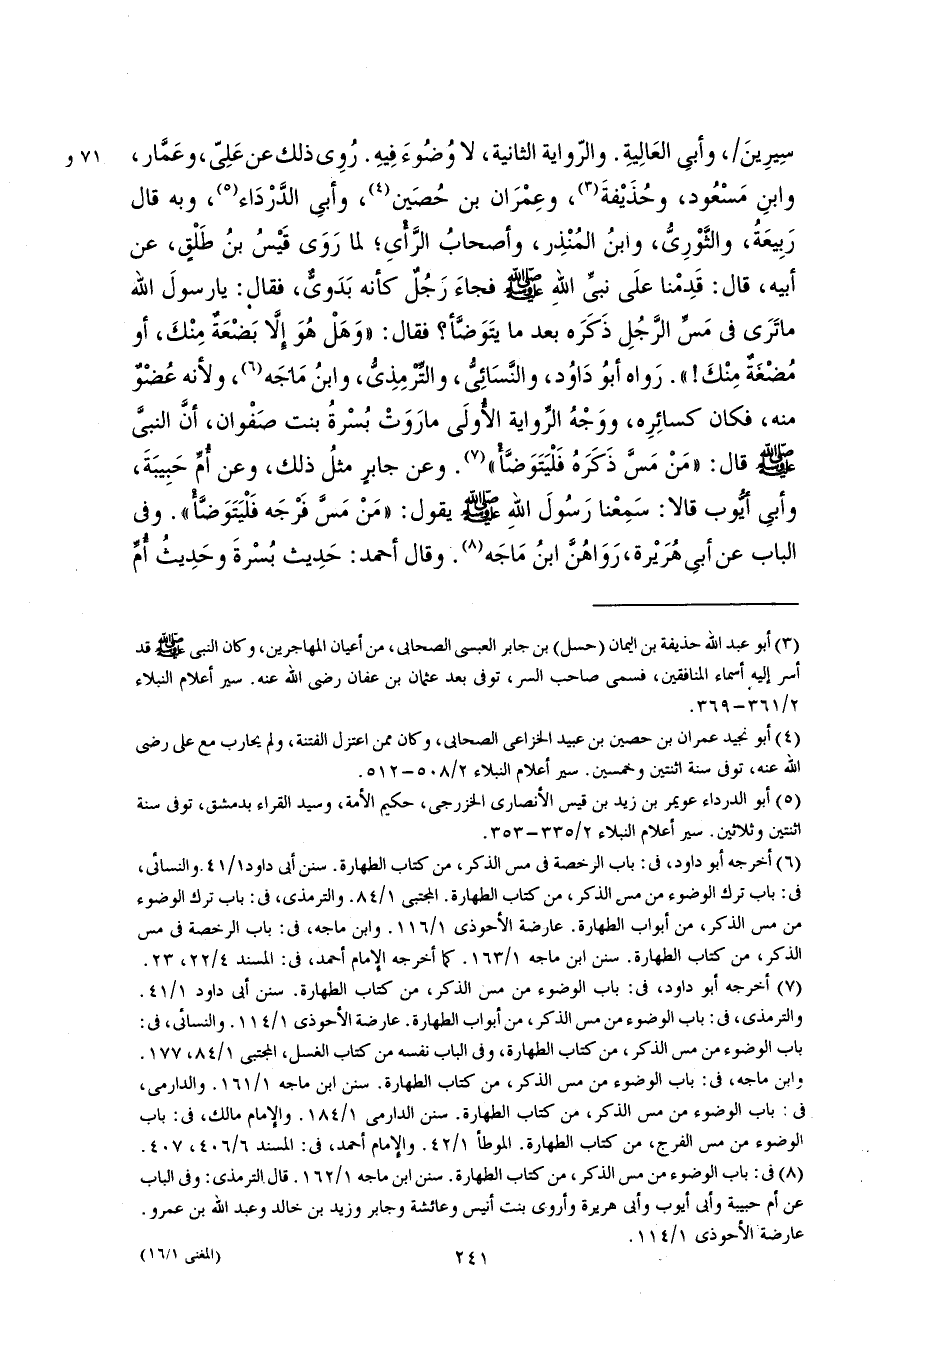 سِيرِينَ/، وأبي العَالِيةِ. والرِّواية الثانية، لا وُضُوءَ فِيهِ. رُوِى ذلك عن عَلِىّ، وعَمَّار، ٧١ و
وابنِ مَسْعُود، وحُذَيْفةَ(٣)، وعِمْرَان بن حُصَين(٤)، وأبي الدَّرْدَاء(٥)، وبه قال
رَبِيعَةُ، والثَّوْرِىُّ، وابنُ المُنْذِر، وأصحابُ الرَّأْى؛ لما رَوَى قَيْسُ بنُ طَلْقٍ، عن
أبيه، قال: قَدِمْنا علَى نبىِّ اللهِ ﷺ فجاءَ رَجُلٌ كأنه بَدَوىٌّ، فقال: يارسولَ الله
ماتَرَى فى مَسِّ الرَّجُلِ ذَكَرَه بعد ما يتَوضَّأ؟ فقال: «وَهَلْ هُوَ إلَّا بَضْعَةٌ مِنْكَ، أو
مُضْغَةٌ مِنْكَ!». رَواه أبو دَاوُد، والنَّسائِىُّ، والتِّرْمِذِىُّ، وابنُ مَاجَه(٦)، ولأنه عُضْوٌ
منه، فكان كسائِرِه، ووَجْهُ الرِّواية الأُولَى مارَوَتْ بُسْرةُ بنت صَفْوان، أنَّ النبىَّ
ﷺ قال: «مَنْ مَسَّ ذَكَرَهُ فَلْيَتَوَضَّأْ»(٧). وعن جابرٍ مثلُ ذلك، وعن أُمِّ حَبِيبَةَ،
وأبي أيُّوب قالا: سَمِعْنا رَسُولَ اللهِ ﷺ يقول: «مَنْ مَسَّ فَرْجَه فَلْيَتَوَضَّأْ». وفى
الباب عن أبي هُرَيْرة، رَوَاهُنَّ ابنُ مَاجَه(٨). وقال أحمد: حَدِيث بُسْرةَ وحَدِيثُ أُمِّ
(٣) أبو عبد الله حذيفة بن اليمان (حسل) بن جابر العبسى الصحابى، من أعيان المهاجرين، وكان النبى ﷺ قد
أسر إليه أسماء المنافقين، فسمى صاحب السر، توفى بعد عثمان بن عفان رضى الله عنه. سير أعلام النبلاء
٣٦١/٢–٣٦٩.
(٤) أبو نجيد عمران بن حصين بن عبيد الخزاعى الصحابى، وكان ممن اعتزل الفتنة، ولم يحارب مع على رضى
الله عنه، توفى سنة اثنتين وخمسين. سير أعلام النبلاء ٥٠٨/٢–٥١٢.
(٥) أبو الدرداء عويمر بن زيد بن قيس الأنصارى الخزرجى، حكيم الأمة، وسيد القراء بدمشق، توفى سنة
اثنتين وثلاثين. سير أعلام النبلاء ٣٣٥/٢–٣٥٣.
(٦) أخرجه أبو داود، فى: باب الرخصة فى مس الذكر، من كتاب الطهارة. سنن أبى داود٤١/١. والنسائى،
فى: باب ترك الوضوء من مس الذكر، من كتاب الطهارة. المجتبى ٨٤/١. والترمذى، فى: باب ترك الوضوء
من مس الذكر، من أبواب الطهارة. عارضة الأحوذى ١١٦/١. وابن ماجه، فى: باب الرخصة فى مس
الذكر، من كتاب الطهارة. سنن ابن ماجه ١٦٣/١. كما أخرجه الإمام أحمد، فى: المسند ٢٢/٤، ٢٣.
(٧) أخرجه أبو داود، فى: باب الوضوء من مس الذكر، من كتاب الطهارة. سنن أبى داود ٤١/١.
والترمذى، فى: باب الوضوء من مس الذكر، من أبواب الطهارة. عارضة الأحوذى ١١٤/١. والنسائى، فى:
باب الوضوء من مس الذكر، من كتاب الطهارة، وفى الباب نفسه من كتاب الغسل، المجتبى ٨٤/١، ١٧٧.
وابن ماجه، فى: باب الوضوء من مس الذكر، من كتاب الطهارة. سنن ابن ماجه ١٦١/١. والدارمى،
فى: باب الوضوء من مس الذكر، من كتاب الطهارة. سنن الدارمى ١٨٤/١. والإمام مالك، فى: باب
الوضوء من مس الفرج، من كتاب الطهارة. الموطأ ٤٢/١. والإمام أحمد، فى: المسند ٤٠٦/٦، ٤٠٧.
(٨) فى: باب الوضوء من مس الذكر، من كتاب الطهارة. سنن ابن ماجه ١٦٢/١. قال الترمذى: وفى الباب
عن أم حبيبة وأبى أيوب وأبى هريرة وأروى بنت أنيس وعائشة وجابر وزيد بن خالد وعبد الله بن عمرو.
عارضة الأحوذى ١١٤/١.
٢٤١
(المغنى ١٦/١)